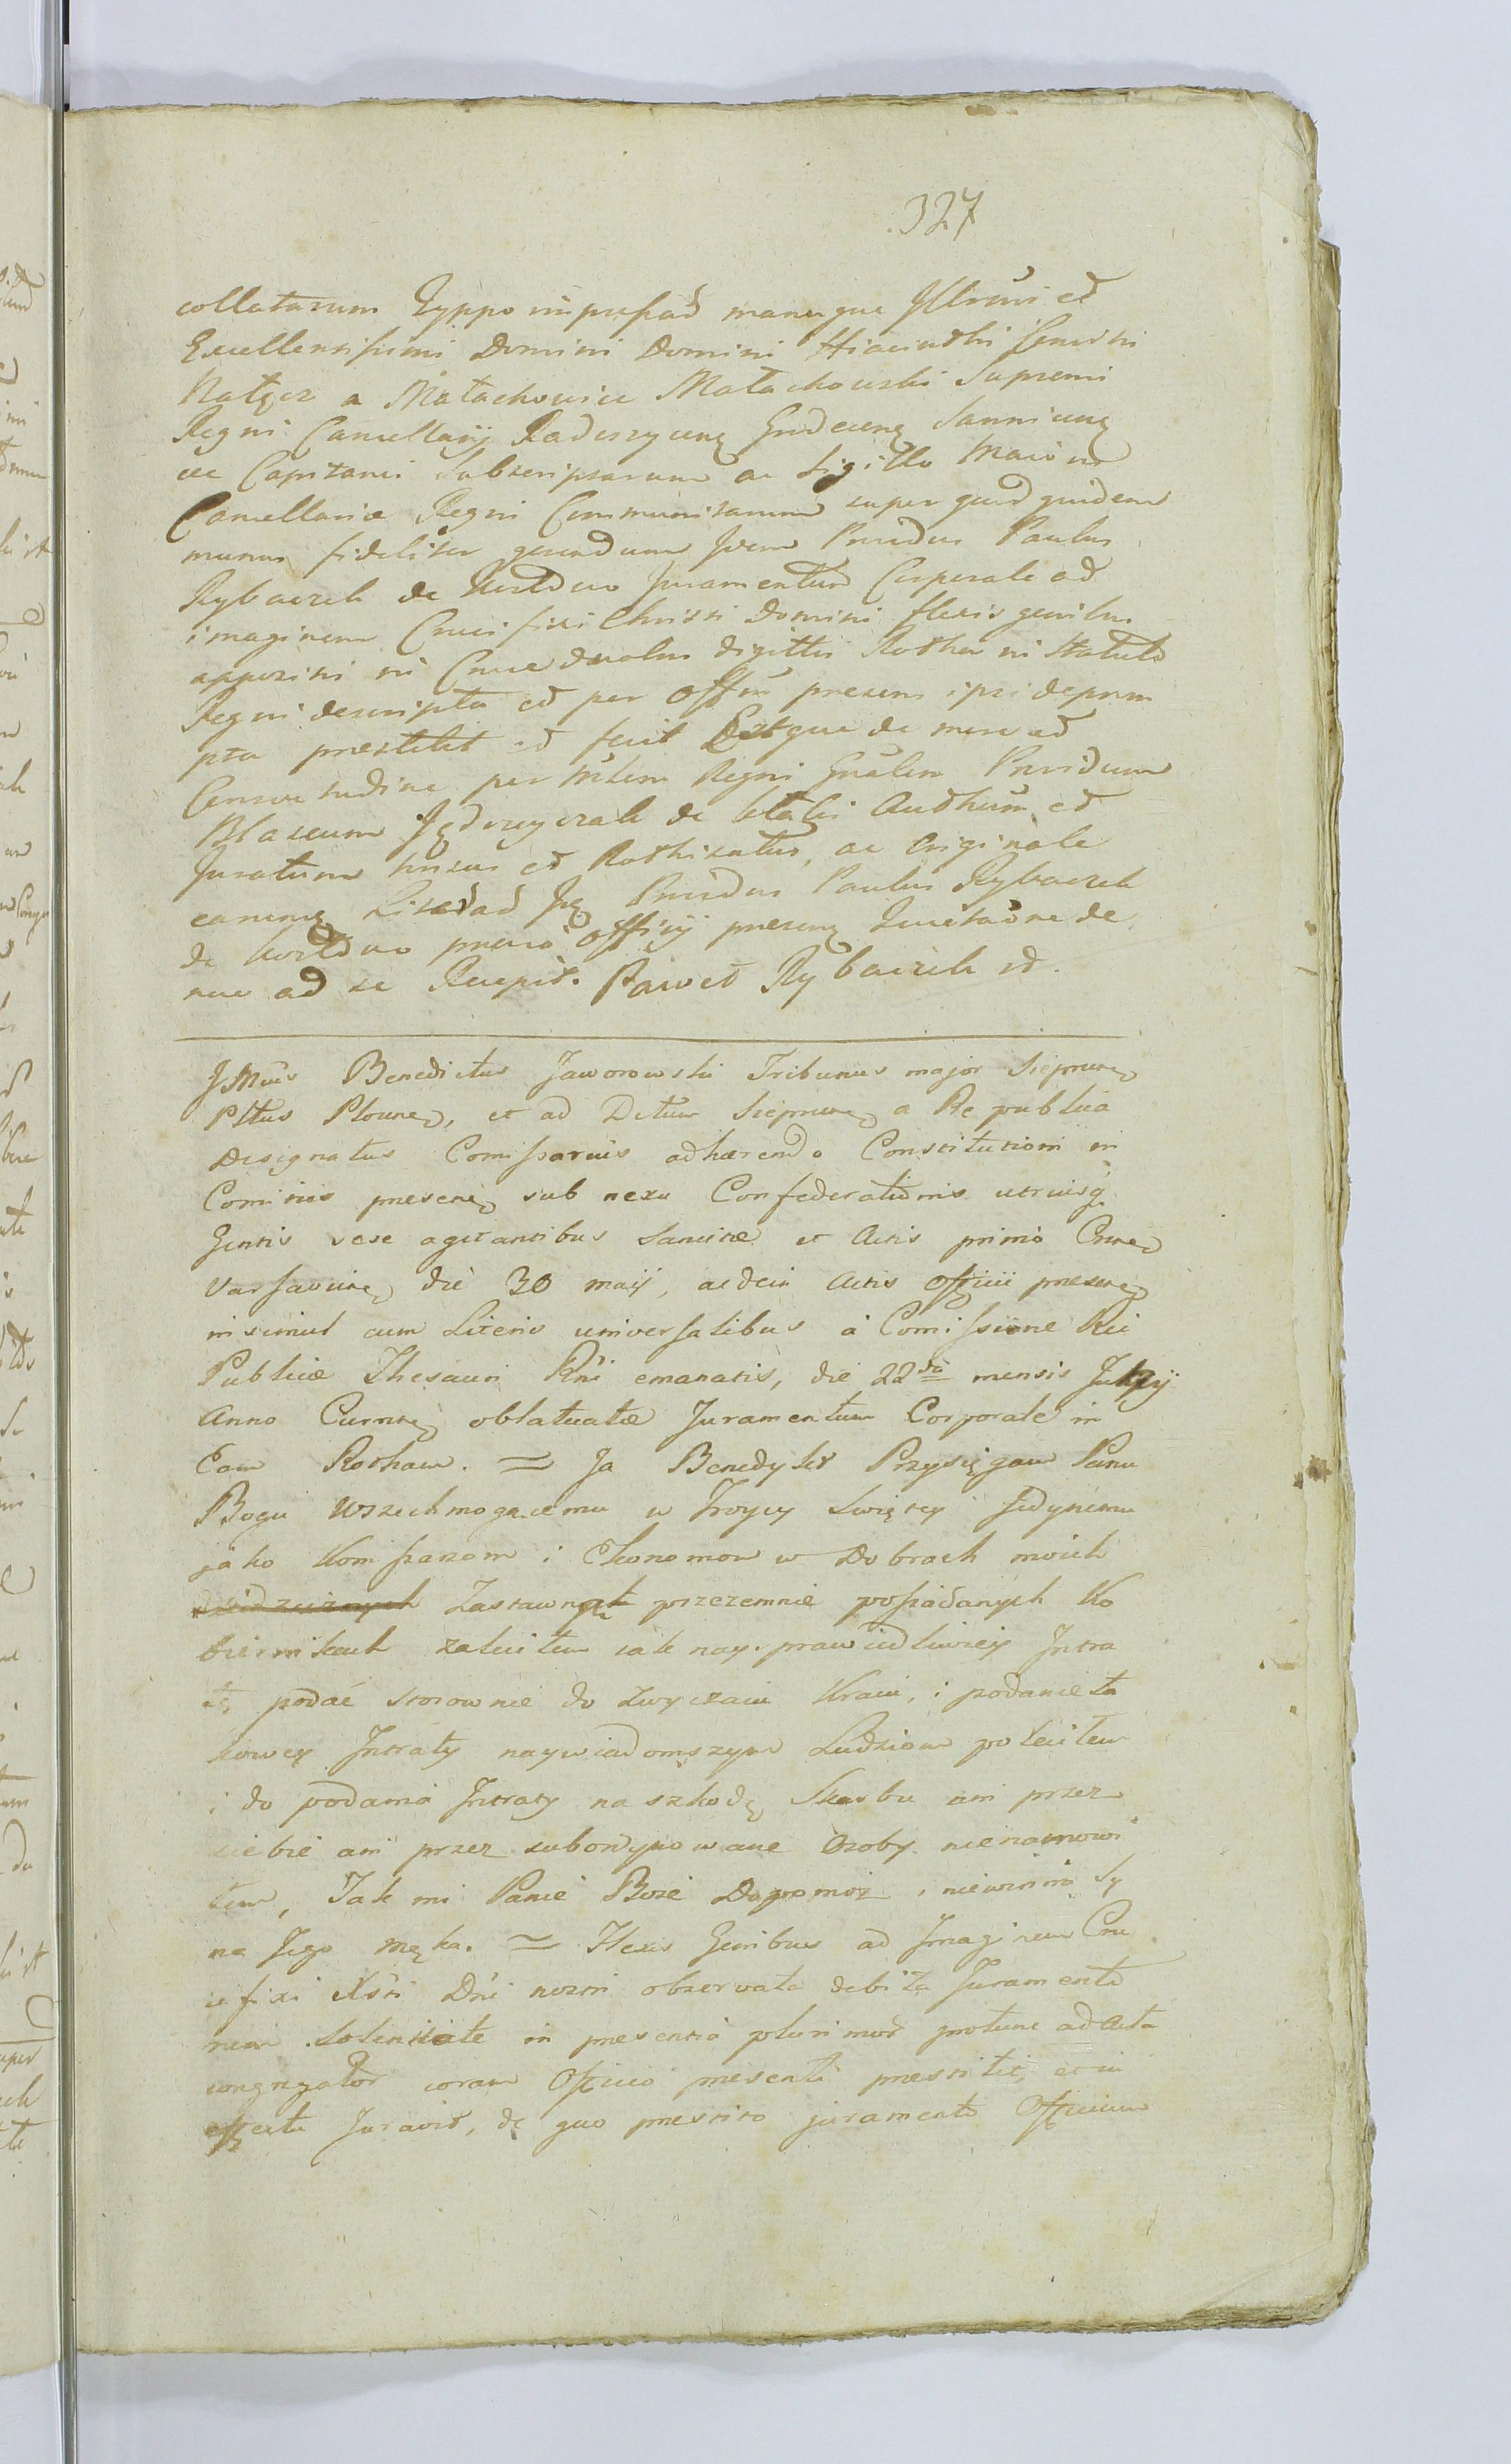 327
collatarum Typpo impressad manuque Illrmi et
Excellentissimi Domini Domini Hiacinthi
Nałęcz a Małachowice Małachowski Supremi
Regni Cancellarij Radoszycen Grodecens Sannicens
etc Capitanei Subscriptarum ac Sigillo Maiori
Cancellariæ Regni Communitarum super quod quidem
munus fideliter gerendum Idem Pruidus Paulus
Rybaczek de Juramentum Corporale ad
imaginem Crucifixi Christi Domini flexis genibus
appositis in Cruce duobus digittis Rotha in Statuto
Regni descripta et per Offm presens ipsi deprom
pta prestitit et fecit Estque de more et
Consvetudine per Mlem Regni Gnalem Pruidum
Blaseum Jędrzyczak de Authum et
Juratum et Rothizatus, ac Originale
earumq Litad Pruidus Paulus Rybaczek
de præuio Officij presens Quietaõne de
nuo ad se Recepit. Paweł Rybaczek st.
JMus Benedictus Jaworowski Tribunus major Sieprcen
Pltus Plocnen, et ad Dctum Sieprcen a Re publica
Designatus Comissarius adhærendo Constitutioni in
Comitiis presenę sub nexu Confederationis utriusq
Gentis sese agitantibus Sancitæ et Actis primo Cnen
Varsavien die 30 maij, ac dein Actis Officii presen
insimul cum Literis universalibus à Comissione Rei
Publicæ Thesauri Rni emanatis, die 22da mensis Julij
Anno Currnę oblatuatæ Juramentum Corporale in
Eam Rotham. = Ja Benedykt Przysięgam Panu
Bogu Wszechmogącemu w Troycy Swiętey Jedynemu
jako Komissarzom i Ekonomom w Dobrach moich
dziedzicznych Zastawnych przezemnie possiadanych Ko
biernikach zaleciłem iak nay. prawiedliwiey Intra
tę podać stosownie do Zwyczaiu Kraiu, i podanie ta
kowey Intraty naywiadomszym Ludziom poleciłem
i do podania Intraty na szkodę Skarbu ani przez
siebie ani przez subordynowane Osoby nienamowi
łem, Tak mi Panie Boże Dopomoż i niewinna Sy
na Jego męka. = Flexis Genibus ad Imaginem Cru
cifixi Xsti Dni nostri observata debita Juramento
rum Solenitate in presentia plurimor protunc ad Acta
congregator coram Officio presenti prestitit, et in
effectu Juravit, de quo prestito juramento Officium